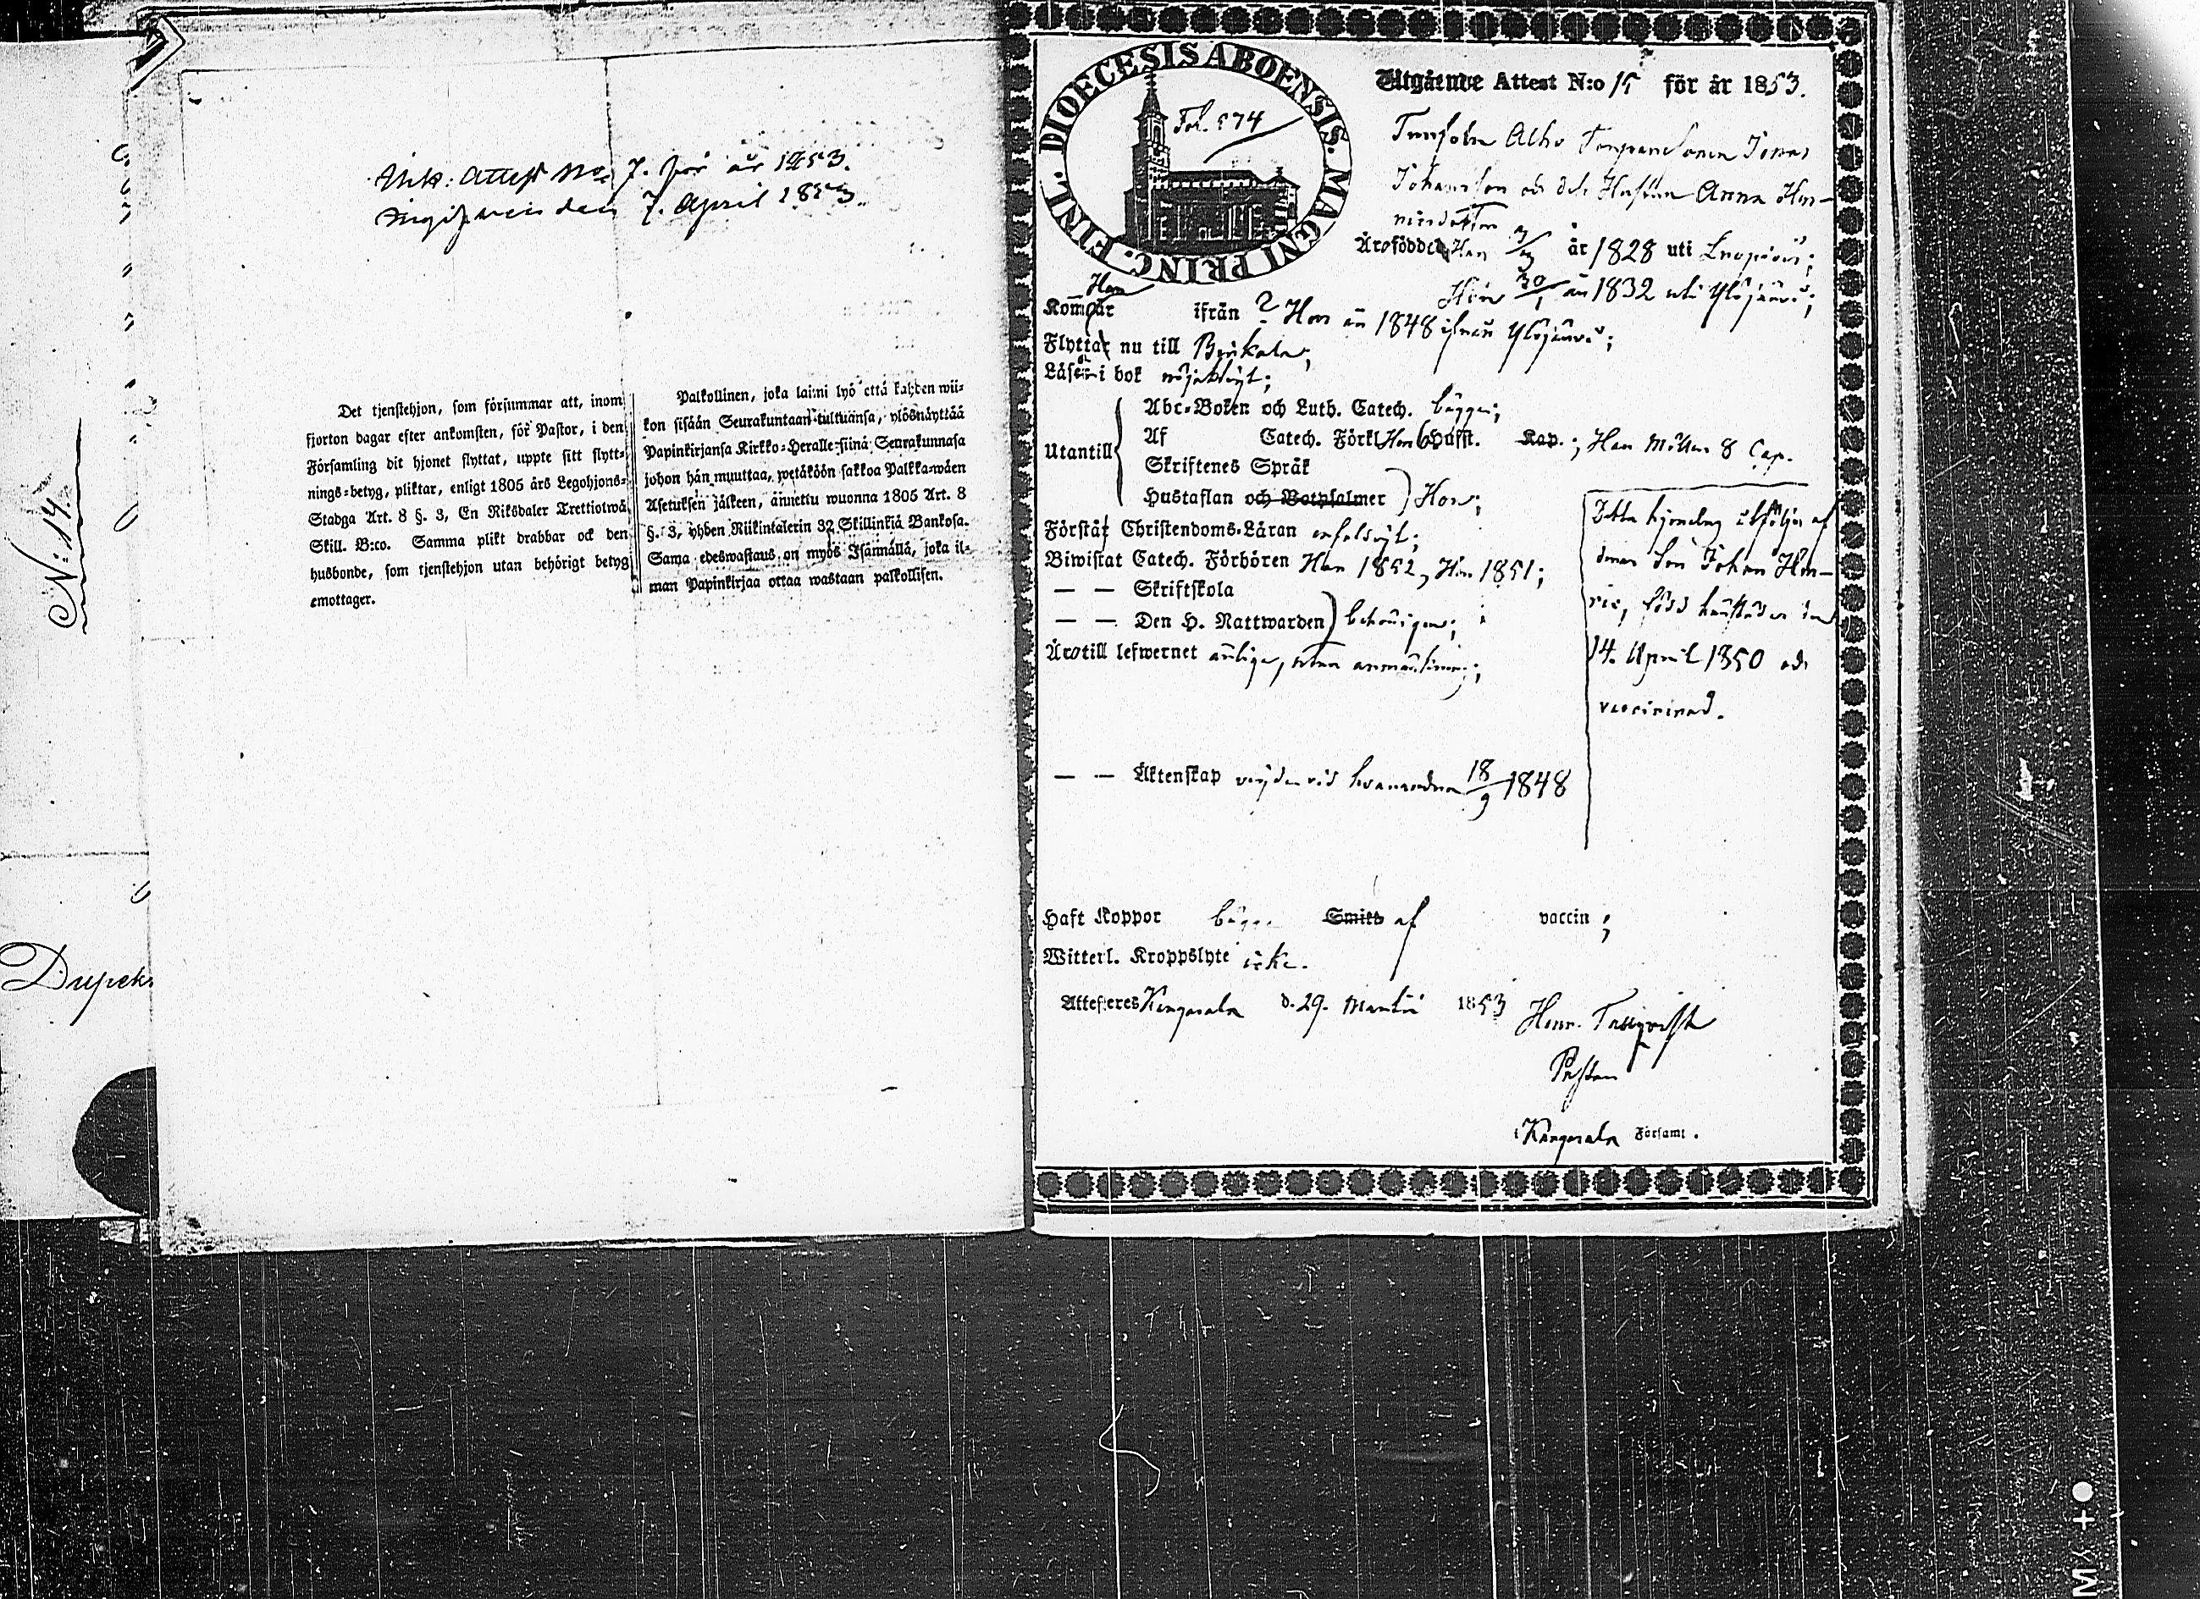 N:14.
Ank: Attest No 7. för år 1853.
Ingifven den 7. April 1853.
Det tjenstehjon, som försummar att, inom
fjorton dagar efter ankomsten, för Pastor, i den
Församling dit hjonet flyttat, uppte sitt flytt-
nings-betyg, pliktar, enligt 1805 års Legohjons-
Stadga Art. 8 §. 3, En Riksdaler Trettiotwå
Skill. B:co. Samma plikt drabbar ock den
husbonde, som tjenstehjon utan behörigt betyg
emottager.
Palkollinen, joka laimi lyö että kahden wii-
kon sisään Seurakuntaan tulkuansa, ylösnäyttää
Papinkirjansa Kirkko-Heralle siinä Seurakunnasa
johon hän muuttaa, wetäköön sakkoa Palkka-wäen
Asetuksen jälkeen, annettu wuonna 1805 Art. 8
§. 3, yhden Riikintalerin 32 Skillinkiä Bankosa.
Sama edeswastaus on myös Isännällä, joka il-
man Papinkirjaa ottaa wastaan palkollisen.
DIOECESIS ABOENSIS. MAGNI PRINC. FINL.
Fol. 574
Utgående Attest N:o 15 för år 1853.
Johansson och dess Hustru Anna Hen-
Äro födde Han år 1828 uti
Hon 30/1 år 1832 uti Ylöjärvi;
Han
Kom ifrån ? Hon år 1848 ifrån Ylöjärvi;
Flytta nu till Birkala;
Läsa i bok nöjaktigt;
Utantill
Abc-Boken och Luth. Catech. bägge;
Af Catech. Förkl. Hon 6 Hufst. Kap.; Han 8 Cap.
Skriftenes Språk
Hustaflan och Botpsalmer Hon;
Förstå Christendoms-Läran enfaldigt;
Biwistat Catech. Förhören Han 1852, Hon 1851;
— — Skriftskola
— — Den H. Nattwarden behörigen;
Äro till lefwernet ärlige, utan anmärkning;
— — Äktenskap med hvarandra 18/9 1848
Detta hjonelag åtföljes af
deras Son Johan Hen-
ric, född härstädes den
14. April 1850 och
vaccinerad.
Haft Koppor bägge Smitt af vaccin;
Witterl. Kroppslyte icke.
Attesteres Kangasala d. 29. Martii 1853
Pastor
i Kangasala Församl.